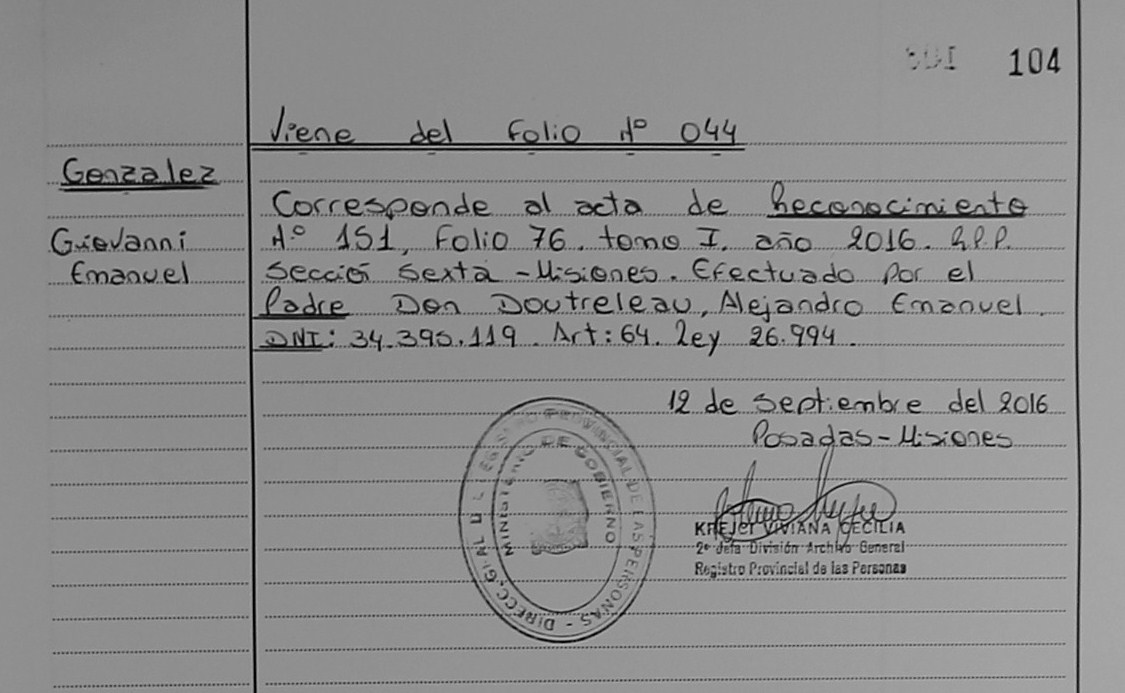 104
Viene del Folio Nº 044
Gonzalez
Giovanni
Emanuel
Corresponde al acta de Reconocimiento
Nº 151, Folio 76. tomo I. año 2016. R.P.P.
Sección Sexta - Misiones. Efectuado Por el
Padre Don Doutreleau, Alejandro Emanuel.
DNI: 34.395.119. Art: 64. Ley 26.994.
12 de Septiembre del 2016
Posadas - Misiones
MINISTERIO DE GOBIERNO
PROVINCIAL DE LAS PERSONAS - DIRECC. GRAL
VIVIANA CECILIA
2º Jefa División Archivo General
Registro Provincial de las Personas